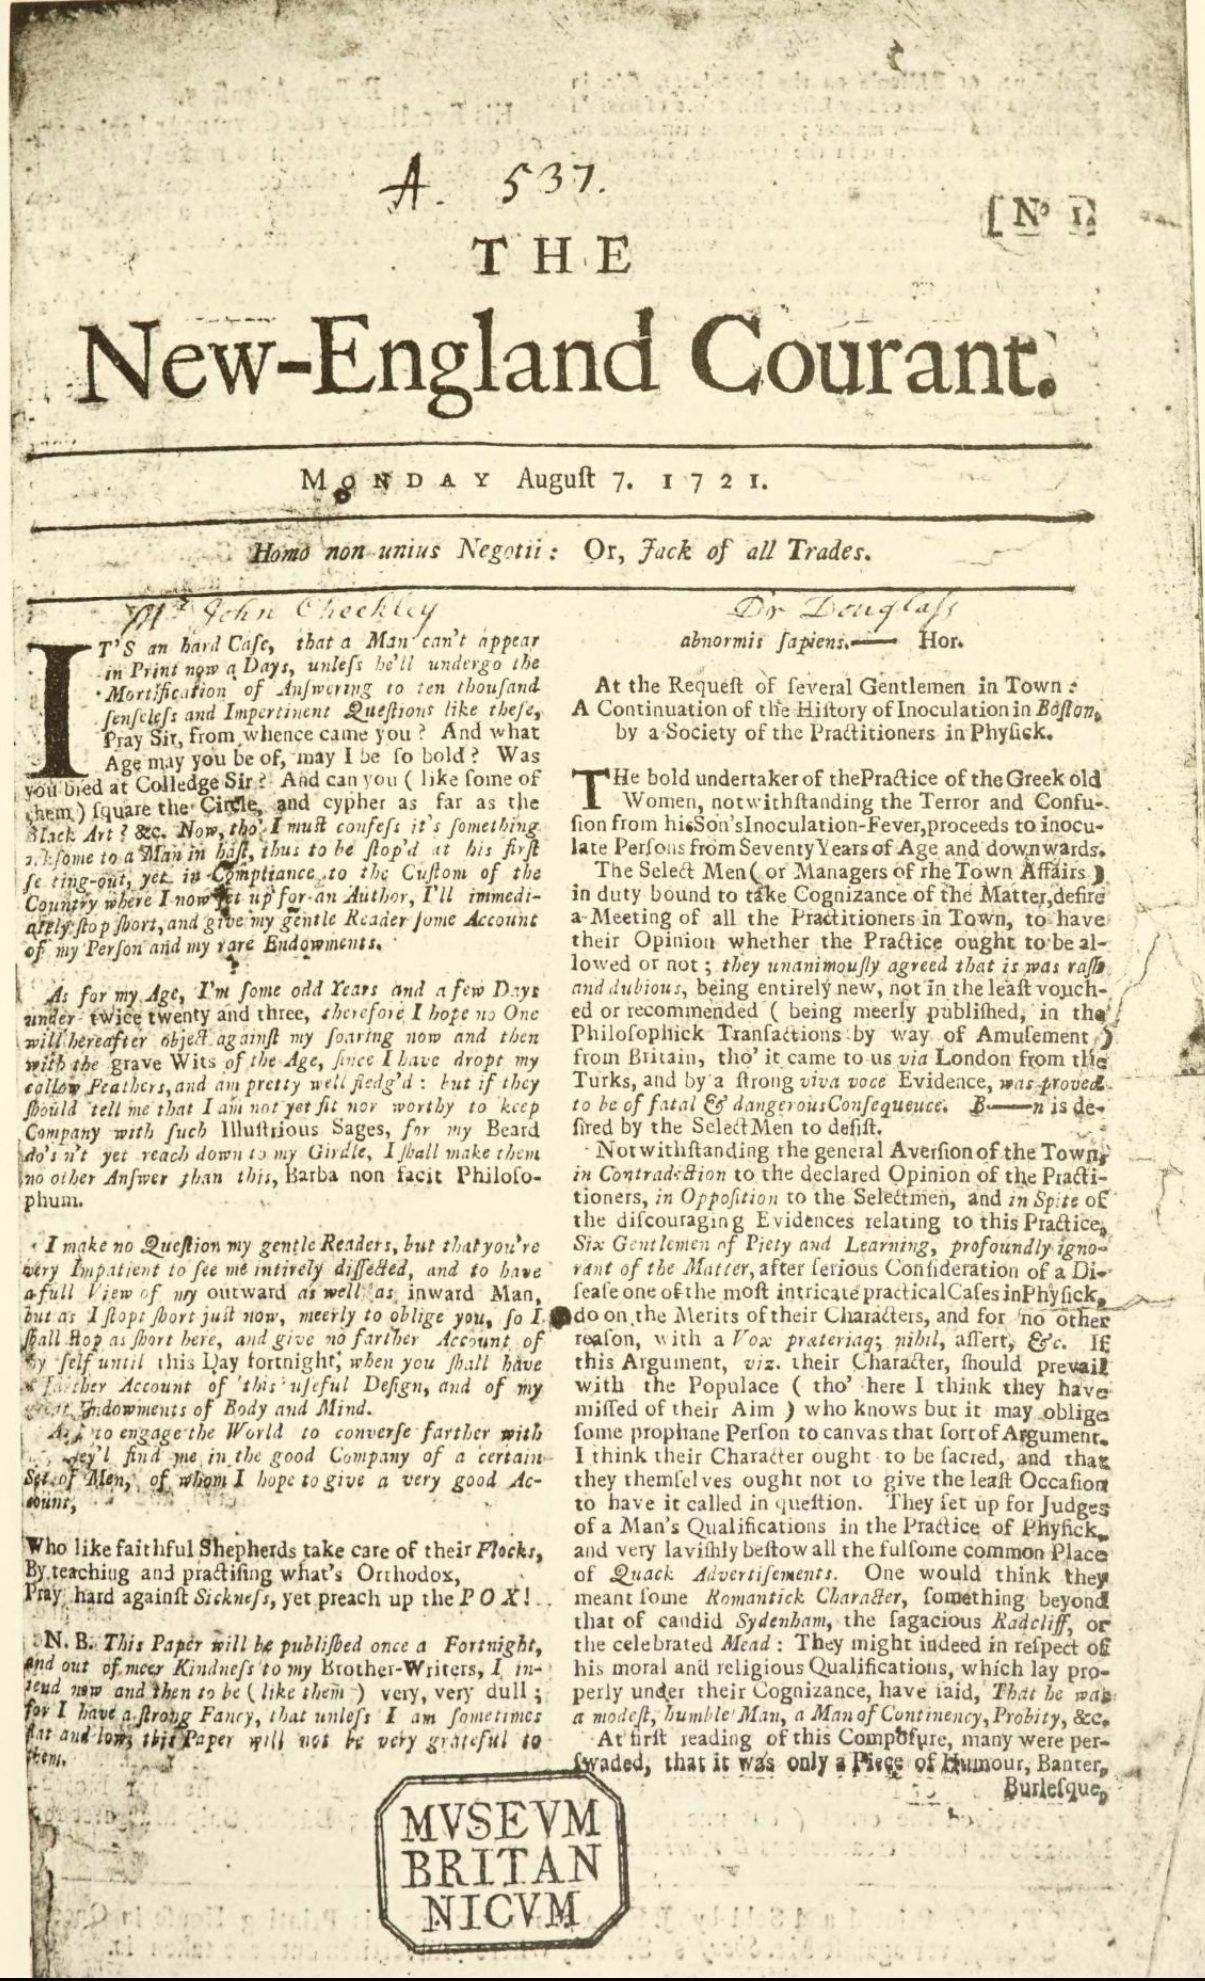 A. 537.
[ Nº 1
THE
New-England Courant.
MONDAY Auguſt 7. 1721.
Homo non unius Negotii: Or, Jack of all Trades.
Mr John Checkley
IT'S an hard Caſe, that a Man can't appear
in Print now a Days, unleſs he'll undergo the
Mortification of Anſwering to ten thouſand
ſenſeleſs and Impertinent Queſtions like theſe,
Pray Sir, from whence came you? And what
Age may you be of, may I be ſo bold? Was
you bred at Colledge Sir? And can you (like ſome of
them) ſquare the Circle, and cypher as far as the
Black Art? &c. Now, tho' I muſt confeſs it's ſomething
to a Man in haſt, thus to be ſtop'd at his firſt
ſetting-out, yet in Compliance to the Cuſtom of the
Country where I now ſet up for an Author, I'll immedi-
ately ſtop ſhort, and give my gentle Reader ſome Account
of my Perſon and my rare Endowments.
As for my Age, I'm ſome odd Years and a few Days
under twice twenty and three, therefore I hope no One
will hereafter object againſt my ſoaring now and then
with the grave Wits of the Age, ſince I have dropt my
callow Feathers, and am pretty well fledg'd: but if they
ſhould tell me that I am not yet fit nor worthy to keep
Company with ſuch Illuſtrious Sages, for my Beard
do's n't yet reach down to my Girdle, I ſhall make them
no other Anſwer than this, Barba non facit Philoſo-
phum.
I make no Queſtion my gentle Readers, but that you're
very Impatient to ſee me intirely diſſected, and to have
a full View of my outward as well as inward Man,
but as I ſtopt ſhort juſt now, meerly to oblige you, ſo I
ſhall ſtop as ſhort here, and give no farther Account of
my ſelf until this Day fortnight, when you ſhall have
a farther Account of this uſeful Deſign, and of my
great Endowments of Body and Mind.
to engage the World to converſe farther with
they'l find me in the good Company of a certain
Set of Men, of whom I hope to give a very good Ac-
count,
Who like faithful Shepherds take care of their Flocks,
By teaching and practiſing what's Orthodox,
Pray hard againſt Sickneſs, yet preach up the POX!
N. B. This Paper will be publiſhed once a Fortnight,
and out of meer Kindneſs to my Brother-Writers, I in-
tend now and then to be (like them) very, very dull;
for I have a ſtrong Fancy, that unleſs I am ſometimes
flat and low, this Paper will not be very grateful to
them.
Dr Douglaſs
abnormis ſapiens.—— Hor.
At the Requeſt of ſeveral Gentlemen in Town:
A Continuation of the Hiſtory of Inoculation in Boſton,
by a Society of the Practitioners in Phyſick.
THe bold undertaker of the Practice of the Greek old
Women, notwithſtanding the Terror and Confu-
ſion from his Son's Inoculation-Fever, proceeds to inocu-
late Perſons from Seventy Years of Age and downwards.
The Select Men (or Managers of rhe Town Affairs)
in duty bound to take Cognizance of the Matter, deſire
a Meeting of all the Practitioners in Town, to have
their Opinion whether the Practice ought to be al-
lowed or not; they unanimouſly agreed that is was raſh
and dubious, being entirely new, not in the leaſt vouch-
ed or recommended (being meerly publiſhed, in the
Philoſophick Tranſactions by way of Amuſement)
from Britain, tho' it came to us via London from the
Turks, and by a ſtrong viva voce Evidence, was proved
to be of fatal & dangerous Conſequence. B——n is de-
ſired by the Select Men to deſiſt.
Notwithſtanding the general Averſion of the Town,
in Contradiction to the declared Opinion of the Practi-
tioners, in Oppoſition to the Selectmen, and in Spite of
the diſcouraging Evidences relating to this Practice,
Six Gentlemen of Piety and Learning, profoundly igno-
rant of the Matter, after ſerious Conſideration of a Di-
ſeaſe one of the moſt intricate practical Caſes in Phyſick,
do on the Merits of their Characters, and for no other
reaſon, with a Vox prateriaq; nihil, aſſert, &c. If
this Argument, viz. their Character, ſhould prevail
with the Populace (tho' here I think they have
miſſed of their Aim) who knows but it may oblige
ſome prophane Perſon to canvas that ſort of Argument.
I think their Character ought to be ſacred, and that
they themſelves ought not to give the leaſt Occaſion
to have it called in queſtion. They ſet up for Judges
of a Man's Qualifications in the Practice of Phyſick,
and very laviſhly beſtow all the fulſome common Place
of Quack Advertiſements. One would think they
meant ſome Romantick Character, ſomething beyond
that of candid Sydenham, the ſagacious Radcliff, or
the celebrated Mead: They might indeed in reſpect of
his moral and religious Qualifications, which lay pro-
perly under their Cognizance, have ſaid, That he was
a modeſt, humble Man, a Man of Continency, Probity, &c.
At firſt reading of this Compoſure, many were per-
ſwaded, that it was only a Piece of Humour, Banter,
Burleſque,
MVSEVM
BRITAN
NICVM